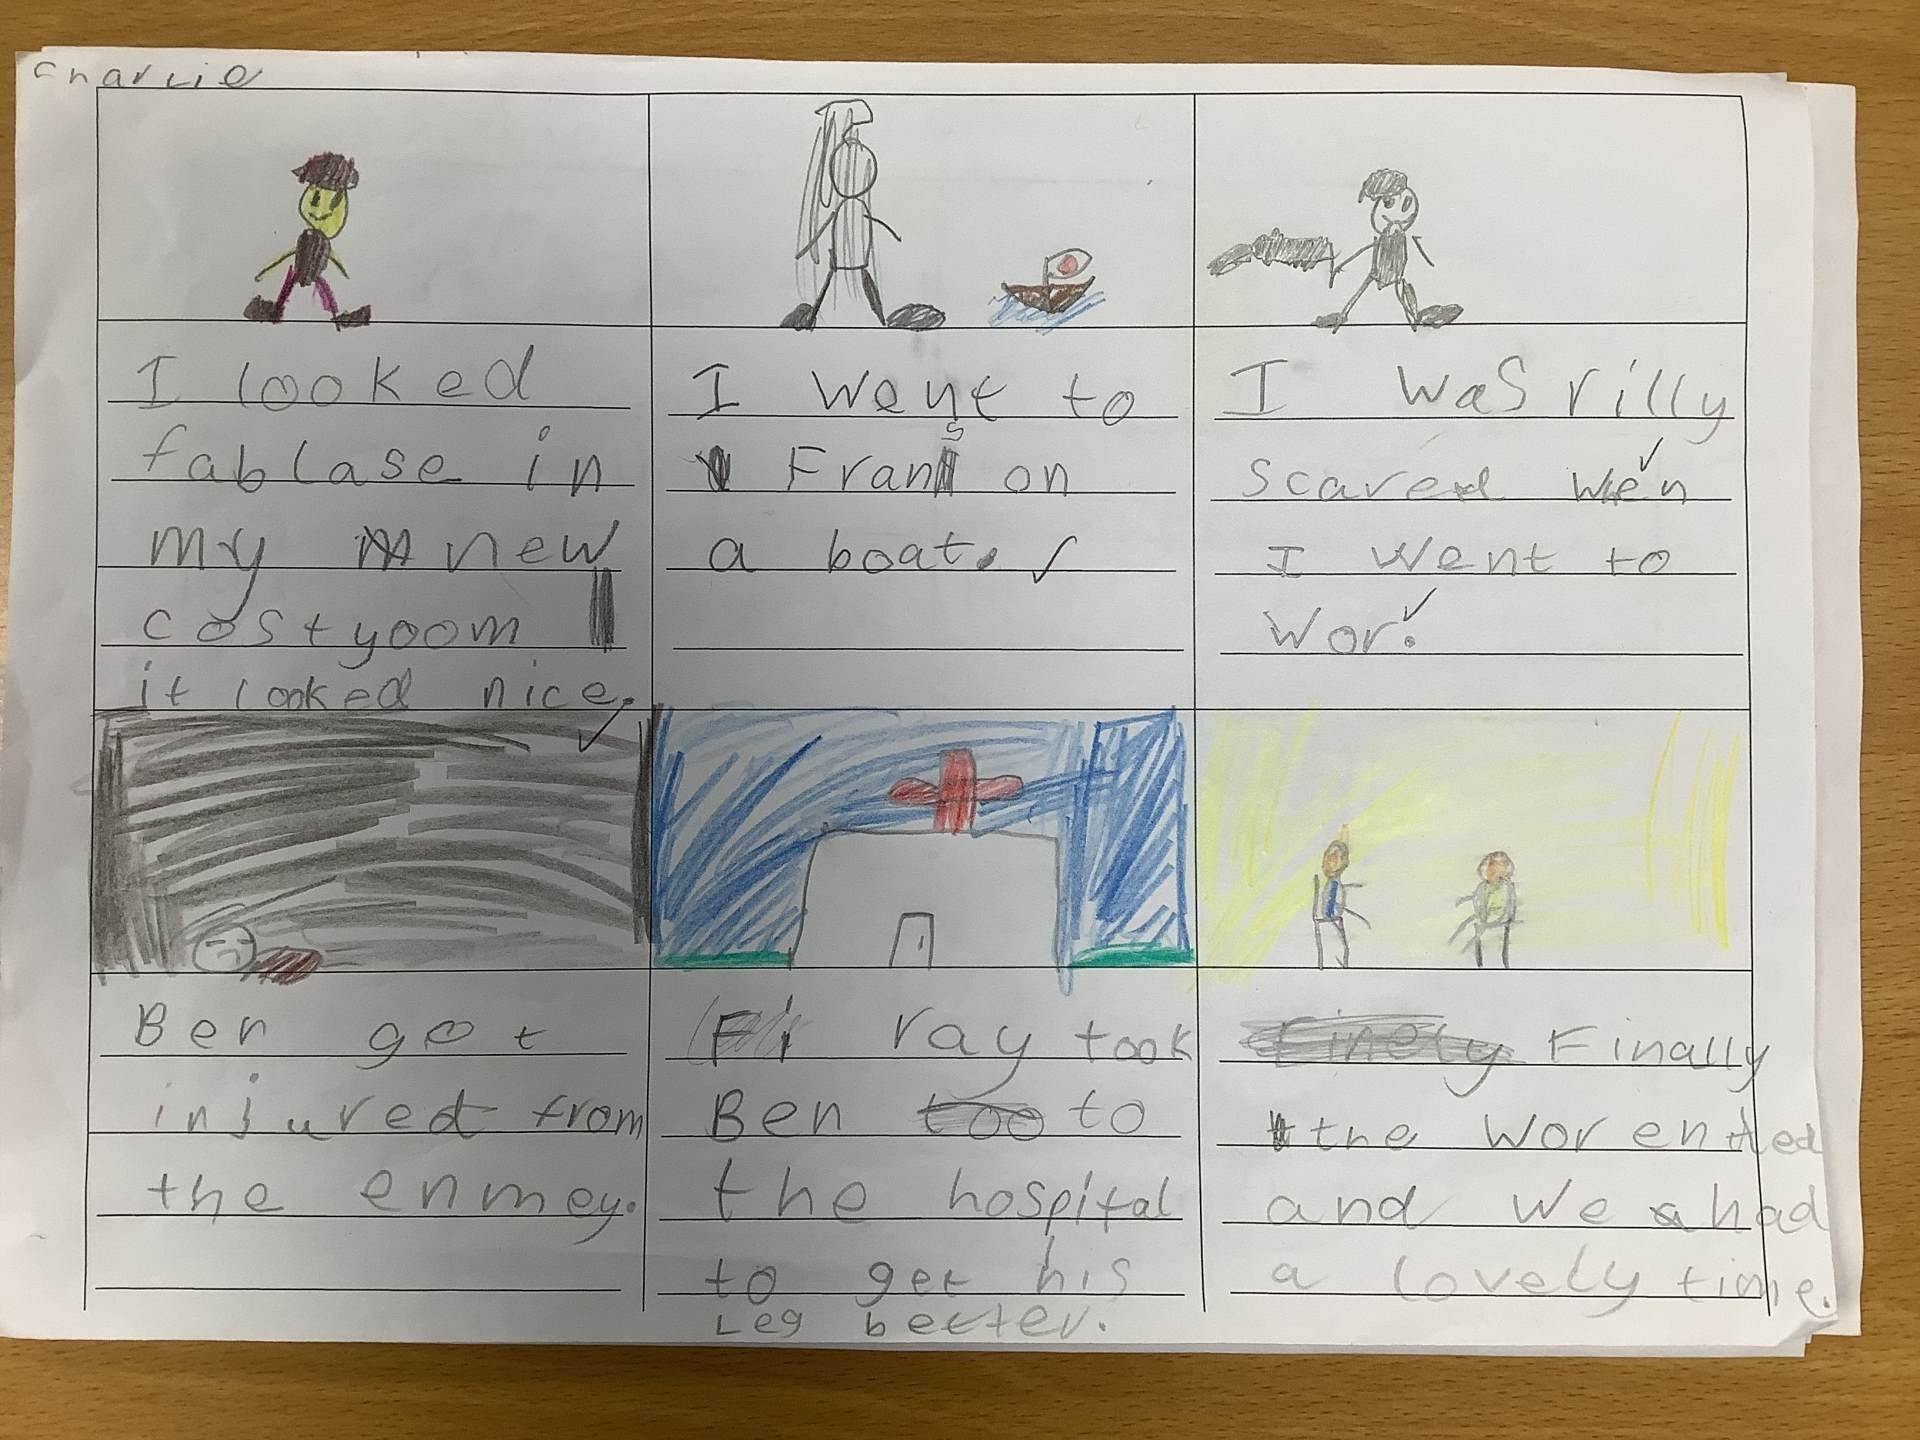 Charlie
I looked
fablase in
my new
costyoom
it looked nice.
I went to
Frans on
a boat.
I was rilly
scared wen
I went to
wor.
Ben got
injured from
the enmey.
ray took
Ben too to
the hospital
to get his
Leg better.
Finely Finally
the wor ented
and we had
a lovely time.